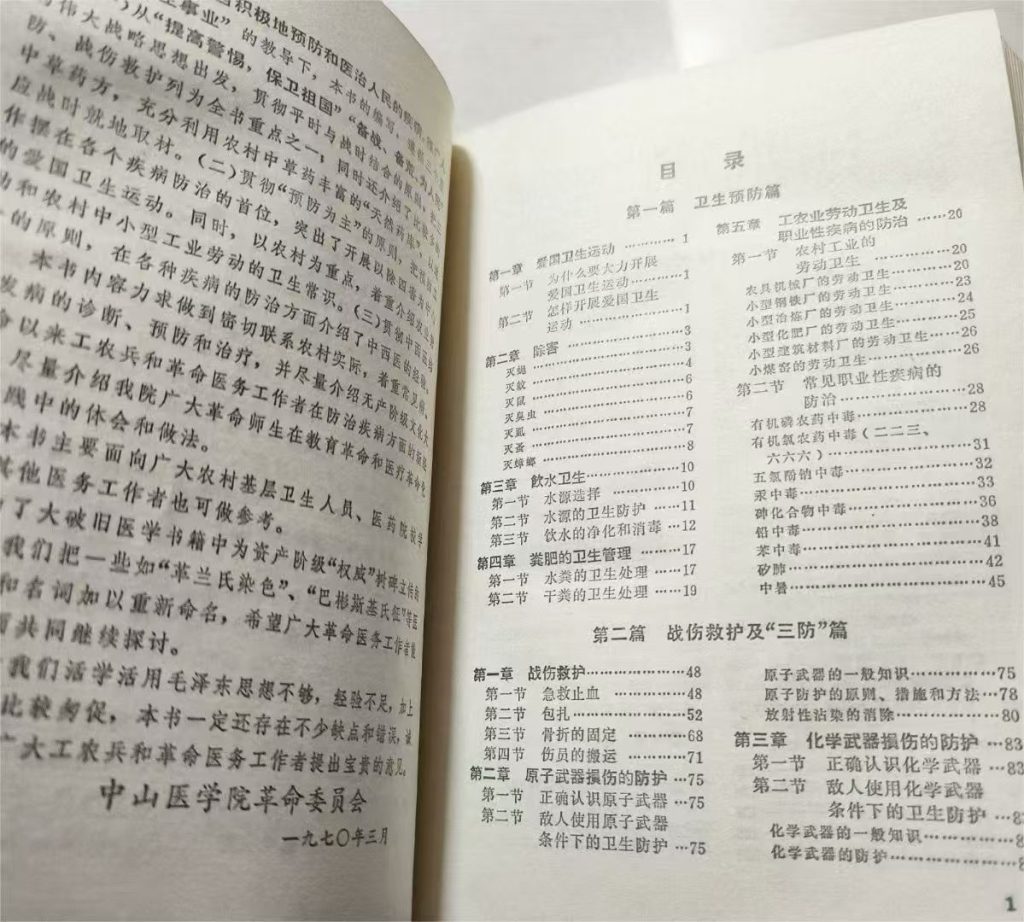 积极地预防和医治人民的疾病
生事业”的教导下,本书的编写,遵循
从“提高警惕,保卫祖国”“备战、备荒、为人民”
伟大战略思想出发,贯彻平时与战时结合的原则,把
防、战伤救护列为全书重点之一,同时还介绍了比较多的
中草药方,充分利用农村中草药丰富的“天然药库”,以适
应战时就地取材。(二)贯彻“预防为主”的原则,把预防工
作摆在各个疾病防治的首位,突出了开展以除四害为中心
的爱国卫生运动。同时,以农村为重点,着重介绍农业劳
动和农村中小型工业劳动的卫生常识。(三)贯彻中西医结
的原则,在各种疾病的防治方面介绍了中西医的经验。
本书内容力求做到密切联系农村实际,着重常见病、
发病的诊断、预防和治疗,并尽量介绍无产阶级文化大
命以来工农兵和革命医务工作者在防治疾病方面的新经
尽量介绍我院广大革命师生在教育革命和医疗革命实
践中的体会和做法。
本书主要面向广大农村基层卫生人员、医药院校学
其他医务工作者也可做参考。
了大破旧医学书籍中为资产阶级“权威”树碑立传的
我们把一些如“革兰氏染色”、“巴彬斯基氏征”等医
和名词加以重新命名,希望广大革命医务工作者能
共同继续探讨。
我们活学活用毛泽东思想不够,经验不足,加上
比较匆促,本书一定还存在不少缺点和错误,诚
广大工农兵和革命医务工作者提出宝贵的意见。
中山医学院革命委员会
一九七〇年三月
目 录
第一篇 卫生预防篇
第一章 爱国卫生运动…………1
第一节 为什么要大力开展
爱国卫生运动……1
第二节 怎样开展爱国卫生
运动……………1
第二章 除害……………………3
灭蝇……………………3
灭蚊……………………4
灭鼠……………………6
灭臭虫…………………6
灭虱……………………7
灭蚤……………………7
灭蟑螂…………………8
第三章 飲水卫生………………10
第一节 水源选择…………10
第二节 水源的卫生防护……11
第三节 饮水的净化和消毒…12
第四章 粪肥的卫生管理………17
第一节 水粪的卫生处理……17
第二节 干粪的卫生处理……19
第五章 工农业劳动卫生及
职业性疾病的防治……20
第一节 农村工业的
劳动卫生……………20
农具机械厂的劳动卫生………20
小型钢铁厂的劳动卫生………23
小型冶炼厂的劳动卫生………24
小型化肥厂的劳动卫生………25
小型建筑材料厂的劳动卫生…26
小煤窑的劳动卫生……………26
第二节 常见职业性疾病的
防治…………………28
有机磷农药中毒………………28
有机氯农药中毒(二二三、
六六六)……………………31
五氯酚钠中毒…………………32
汞中毒…………………………33
砷化合物中毒…………………36
铅中毒…………………………38
苯中毒…………………………41
矽肺……………………………42
中暑……………………………45
第二篇 战伤救护及“三防”篇
第一章 战伤救护………………48
第一节 急救止血…………48
第二节 包扎………………52
第三节 骨折的固定………68
第四节 伤员的搬运………71
第二章 原子武器損伤的防护…75
第一节 正确认识原子武器…75
第二节 敌人使用原子武器
条件下的卫生防护…75
原子武器的一般知识…………75
原子防护的原则、措施和方法…78
放射性沾染的消除……………80
第三章 化学武器損伤的防护…83
第一节 正确认识化学武器…83
第二节 敌人使用化学武器
条件下的卫生防护…8
化学武器的一般知识…………8
化学武器的防护………………8
1